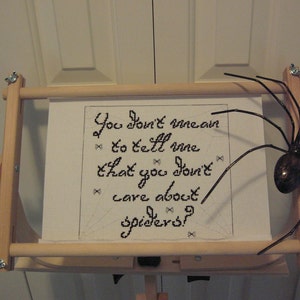 You don't mean
to tell me
that you don't
care about
spiders?